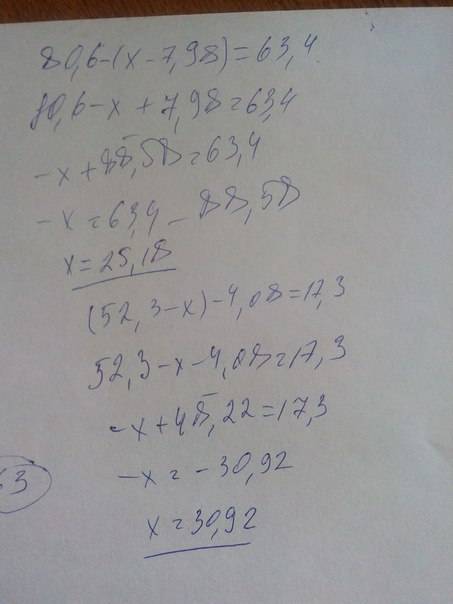 80,6-(x-7,98)=63,4
80,6-x+7,98=63,4
-x+88,58=63,4
-x=63,4-88,58
x=25,18
(52,3-x)-4,08=17,3
52,3-x-4,08=17,3
-x+48,22=17,3
-x=-30,92
x=30,92